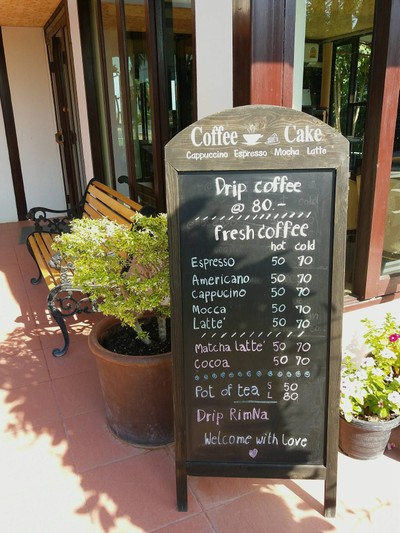 Coffee Cake
Cappuccino Espresso Mocha Latte
Drip coffee
@ 80.-
Fresh coffee
hot cold
Espresso 50 70
Americano 50 70
Cappucino 50 70
Mocca 50 70
Latte' 50 70
Matcha latte' 50 70
Cocoa 50 70
Pot of tea S 50
L 80
Drip RimNa
Welcome with Love